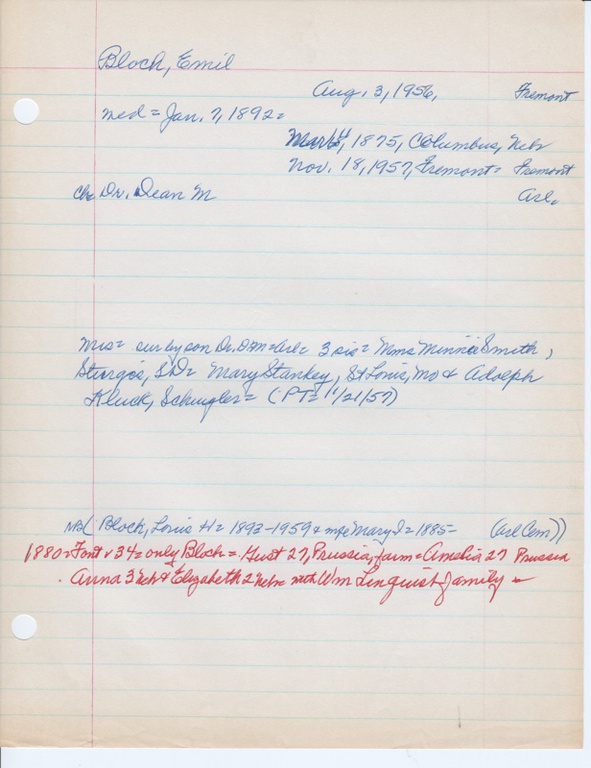 Bloch, Emil
Aug. 3, 1956, Fremont
med = Jan. 7, 1892 =
Mar 4, 1875, Columbus, Nebr
Nov. 18, 1957, Fremont = Fremont
Ch = Dr. Dean M Arl.
Mrs = sur by son Dr. DM = Arl = 3 sis = Mms Minnie Smith,
Sturgis, SD = Mary Stankey, St Louis, Mo & Adolph
Kluck, Schuyler = (PT = 11/21/57)
NB( Block, Louis H = 1893-1959 & Mary I = 1885- (Arl Cem))
1880 = Font v 34 = only Bloch = Gust 27, Prussia, farm = Amelia 27 Prussia
Anna 3 Neb & Elizabeth 2 Nebr with Wm Linquist family